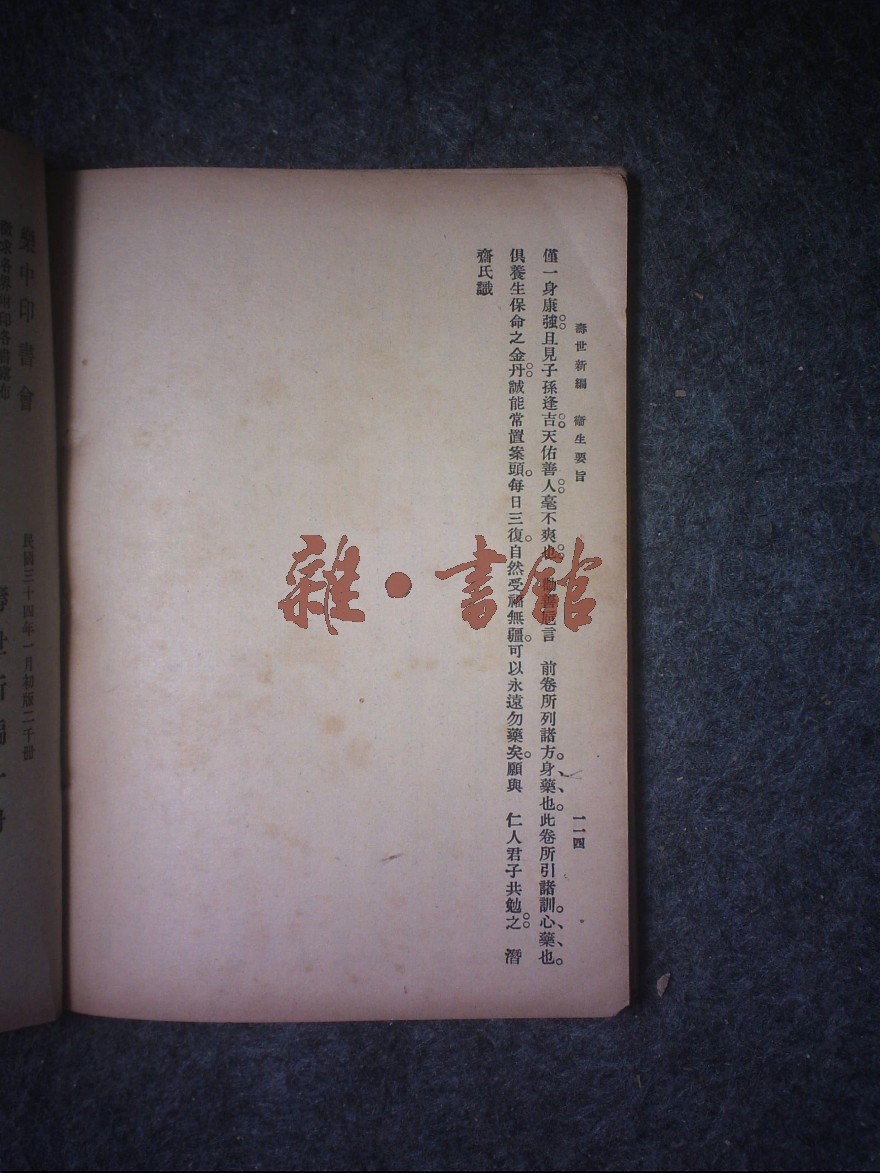 壽世新編　衞生要旨　一一四
僅一身康強。且見子孫逢吉。天佑善人。毫不爽也。　勸善巵言　前卷所列諸方。身藥也。此卷所引諸訓。心藥也。
俱養生保命之金丹。誠能常置案頭。每日三復。自然受福無疆。可以永遠勿藥矣。願與　仁人君子共勉之。　潛
齋氏識
雜·書館
樂中印書會
民國三十四年一月初版二千冊
壽世新編一冊